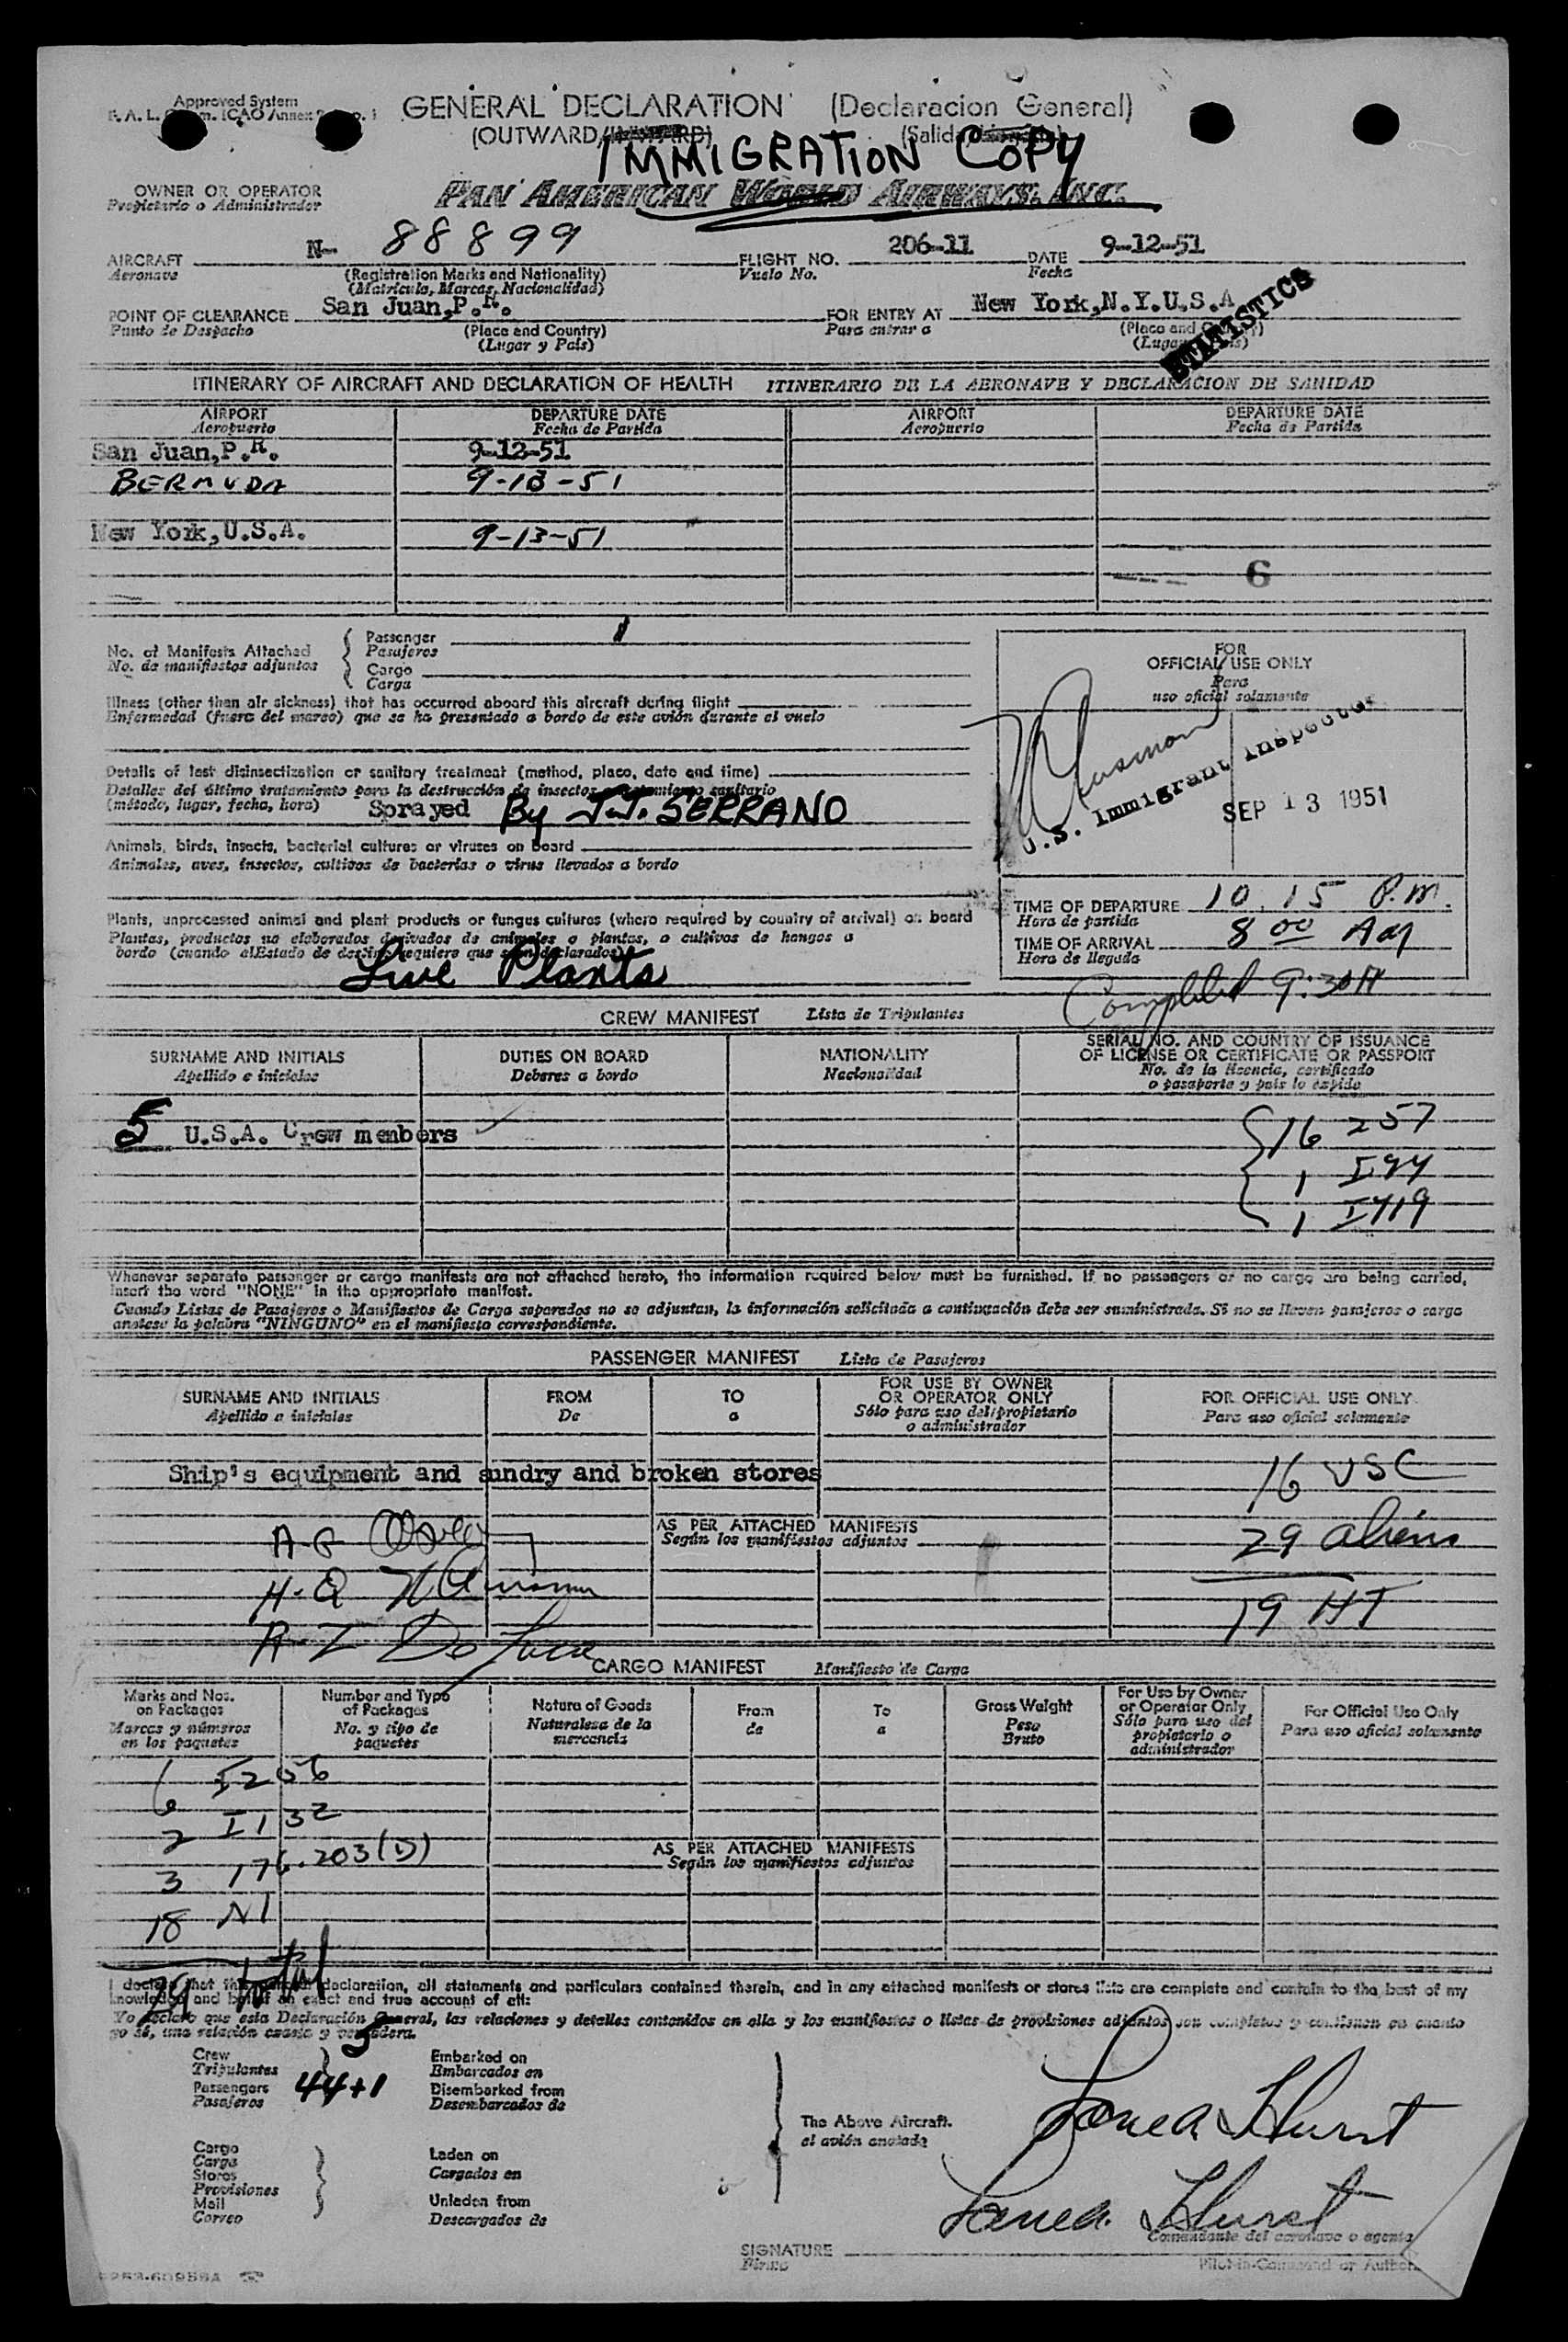 Approved System
GENERAL DECLARATION (Declaracion General)
(OUTWARD/INWARD) (Salida/
IMMIGRATION COPY
OWNER OR OPERATOR
Propietario o Administrador
PAN AMERICAN WORLD AIRWAYS, INC.
AIRCRAFT N- 88899 FLIGHT NO. 206-11 DATE 9-12-51
Aeronave (Registration Marks and Nationality) Vuelo No. Fecha
(Matricula, Marcas, Nacionalidad)
POINT OF CLEARANCE San Juan,P.R. FOR ENTRY AT New York,N.Y.U.S.A
Punto de Despacho (Place and Country) Para entrar a (Place and
(Lugar y País)
STATISTICS
ITINERARY OF AIRCRAFT AND DECLARATION OF HEALTH ITINERARIO DE LA AERONAVE Y DECLARACION DE SANIDAD
AIRPORT DEPARTURE DATE AIRPORT DEPARTURE DATE
Aeropuerto Fecha de Partida Aeropuerto Fecha de Partida
San Juan,P.R. 9-12-51
BERMUDA 9-13-51
New York,U.S.A. 9-13-51
6
No. of Manifests Attached Passenger 1
No. de manifiestos adjuntos Pasajeros
Cargo
Carga
FOR
OFFICIAL USE ONLY
Para
uso oficial solamente
Illness (other than air sickness) that has occurred aboard this aircraft during flight
Enfermedad (fuera del mareo) que se ha presentado a bordo de este avión durante el vuelo
U.S. Immigrant Inspector
SEP 13 1951
Details of last disinsectization or sanitary treatment (method, place, date and time)
Detalles del último tratamiento para la destrucción de insectos o tratamiento sanitario
(método, lugar, fecha, hora) Sprayed By J.J. SERRANO
Animals, birds, insects, bacterial cultures or viruses on board
Animales, aves, insectos, cultivos de bacterias o virus llevados a bordo
Plants, unprocessed animal and plant products or fungus cultures (where required by country of arrival) on board
Plantas, productos no elaborados derivados de animales o plantas, o cultivos de hongos a
bordo (cuando el Estado de destino requiere que sean declarados)
Live Plants
TIME OF DEPARTURE 10.15 P.M.
Hora de partida
TIME OF ARRIVAL 8 00 AM
Hora de llegada
Completed 9:30A
CREW MANIFEST Lista de Tripulantes
SURNAME AND INITIALS DUTIES ON BOARD NATIONALITY SERIAL NO. AND COUNTRY OF ISSUANCE
OF LICENSE OR CERTIFICATE OR PASSPORT
Apellido e iniciales Deberes a bordo Nacionalidad No. de la licencia, certificado
o pasaporte y país lo expide
5 U.S.A. Crew members
16 257
1 I94
1 I419
Whenever separate passenger or cargo manifests are not attached hereto, the information required below must be furnished. If no passengers or no cargo are being carried,
insert the word "NONE" in the appropriate manifest.
Cuando Listas de Pasajeros o Manifiestos de Carga separados no se adjuntan, la información solicitada a continuación debe ser suministrada. Si no se lleven pasajeros o carga
anotese la palabra "NINGUNO" en el manifiesto correspondiente.
PASSENGER MANIFEST Lista de Pasajeros
SURNAME AND INITIALS FROM TO FOR USE BY OWNER
OR OPERATOR ONLY FOR OFFICIAL USE ONLY
Apellido e iniciales De a Sólo para uso del propietario
o administrador Para uso oficial solamente
Ship's equipment and sundry and broken stores
16 USC
AS PER ATTACHED MANIFESTS
Según los manifiestos adjuntos
29 aliens
19 HT
CARGO MANIFEST Manifiesto de Carga
Marks and Nos.
on Packages
Marcas y números
en los paquetes
Number and Type
of Packages
No. y tipo de
paquetes
Nature of Goods
Naturaleza de la
mercancia
From
de
To
a
Gross Weight
Peso
Bruto
For Use by Owner
or Operator Only
Sólo para uso del
propietario o
administrador
For Official Use Only
Para uso oficial solamente
6 I256
2 I132
3 176.203(D)
18 NI
29 total
AS PER ATTACHED MANIFESTS
Según los manifiestos adjuntos
I declare that this general declaration, all statements and particulars contained therein, and in any attached manifests or stores lists are complete and contain to the best of my
knowledge and belief an exact and true account of all:
Yo declaro que esta Declaración General, las relaciones y detalles contenidos en ella y los manifiestos o listas de provisiones adjuntos son completos y contienen en cuanto
yo sé, una relación exacta y verdadera.
Crew 5 Embarked on
Tripulantes Embarcados en
Passengers 44+1 Disembarked from
Pasajeros Desembarcados de
The Above Aircraft.
el avión anotado
Cargo Laden on
Carga Cargados en
Stores
Provisiones
Mail Unladen from
Correo Descargados de
SIGNATURE
Firma
Comandante del aeronave o agente
Pilot-in-Command or Author.